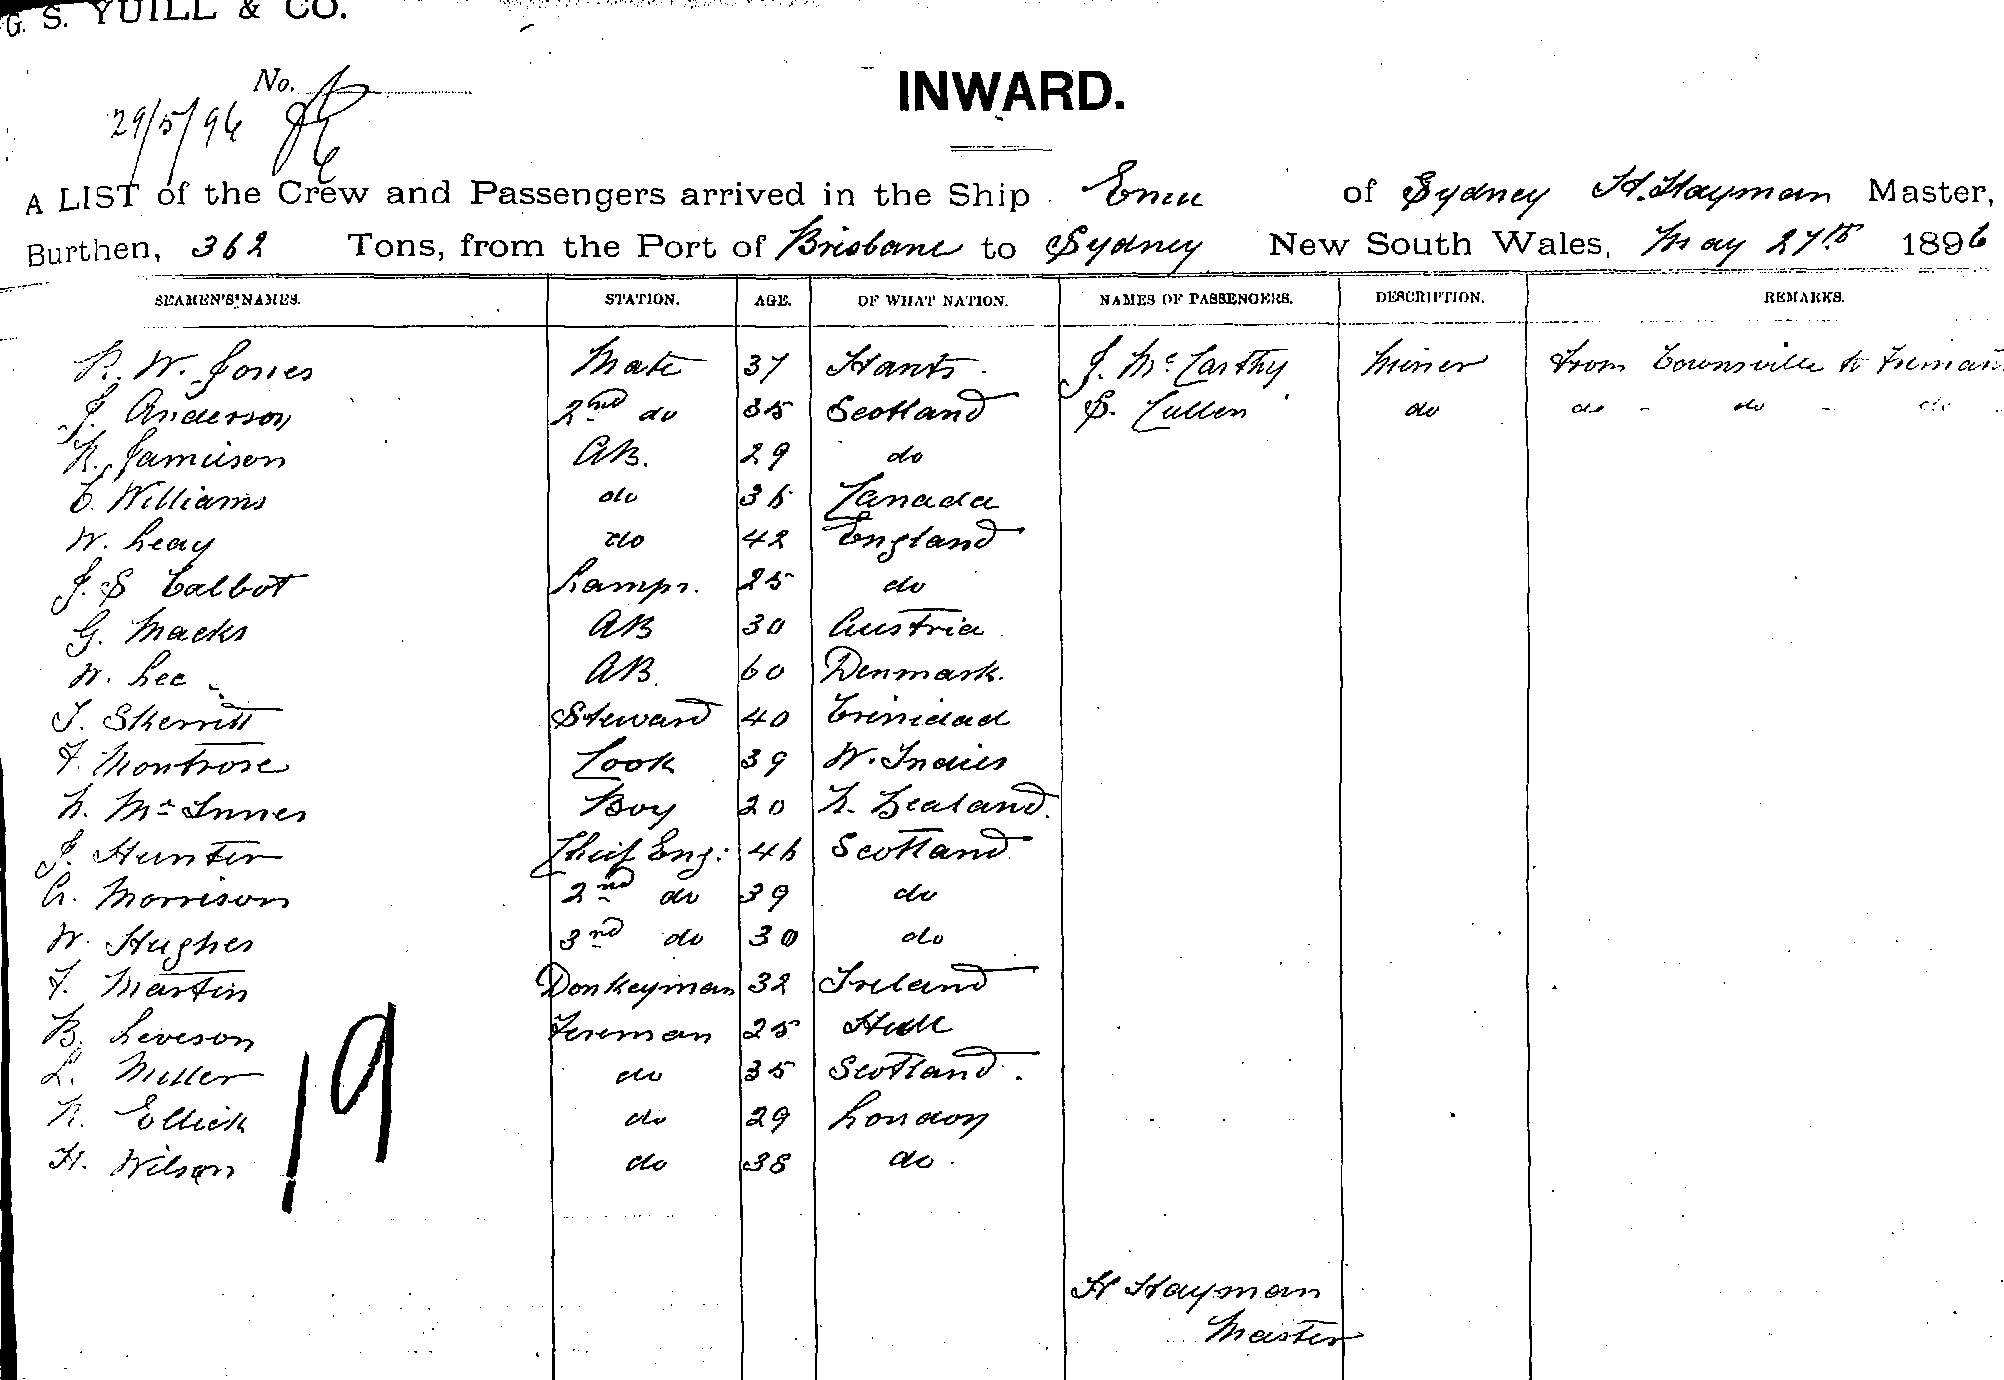 G. S. YUILL & CO.
No.
29/5/96
INWARD.
A LIST of the Crew and Passengers arrived in the Ship Emu of Sydney H. Hayman Master,
Burthen, 362 Tons, from the Port of Brisbane to Sydney New South Wales, May 27th 1896
SEAMEN'S NAMES. STATION. AGE. OF WHAT NATION. NAMES OF PASSENGERS. DESCRIPTION. REMARKS.
W. Jones Mate 37 Hants. J. McCarthy Miner From Townsville to
J. Anderson 2nd do 35 Scotland S. Cullen do do - do - do
Jamieson AB. 29 do
Williams do 36 Canada
W. Leay do 42 England
J. S Talbot Lampr. 25 do
G. Macks AB 30 Austria
W. Lee AB. 60 Denmark.
T. Skerritt Steward 40 Trinidad
F. Montrose Cook 39 W. Indies
N. McInnes Boy 20 N. Zealand.
J. Hunter Chief Eng: 46 Scotland
A. Morrison 2nd do 39 do
W. Hughes 3rd do 30 do
F. Martin Donkeyman 32 Ireland
B. Leveson Fireman 25 Hull
L. Miller do 35 Scotland.
Ellick do 29 London
H. Wilson do 38 do.
19
H Hayman
Master